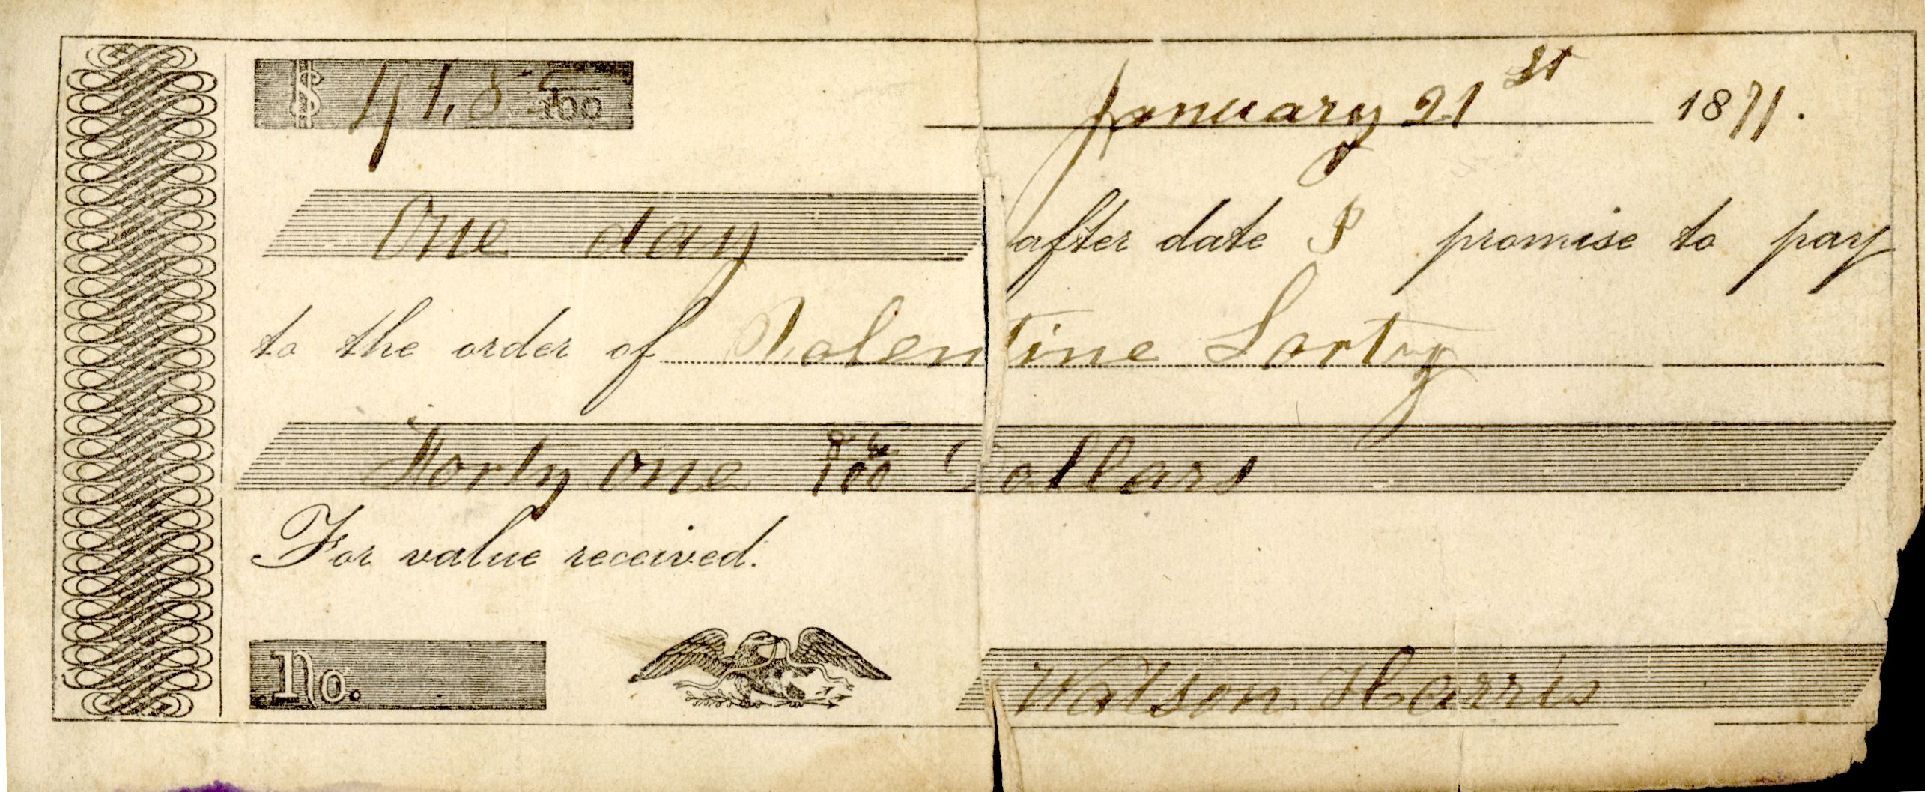 $ 41.85/100 January 21st 1871.
One day after date I promise to pay
to the order of Valentine
Forty one /100 Dollars
For value received.
No. Watson Harris